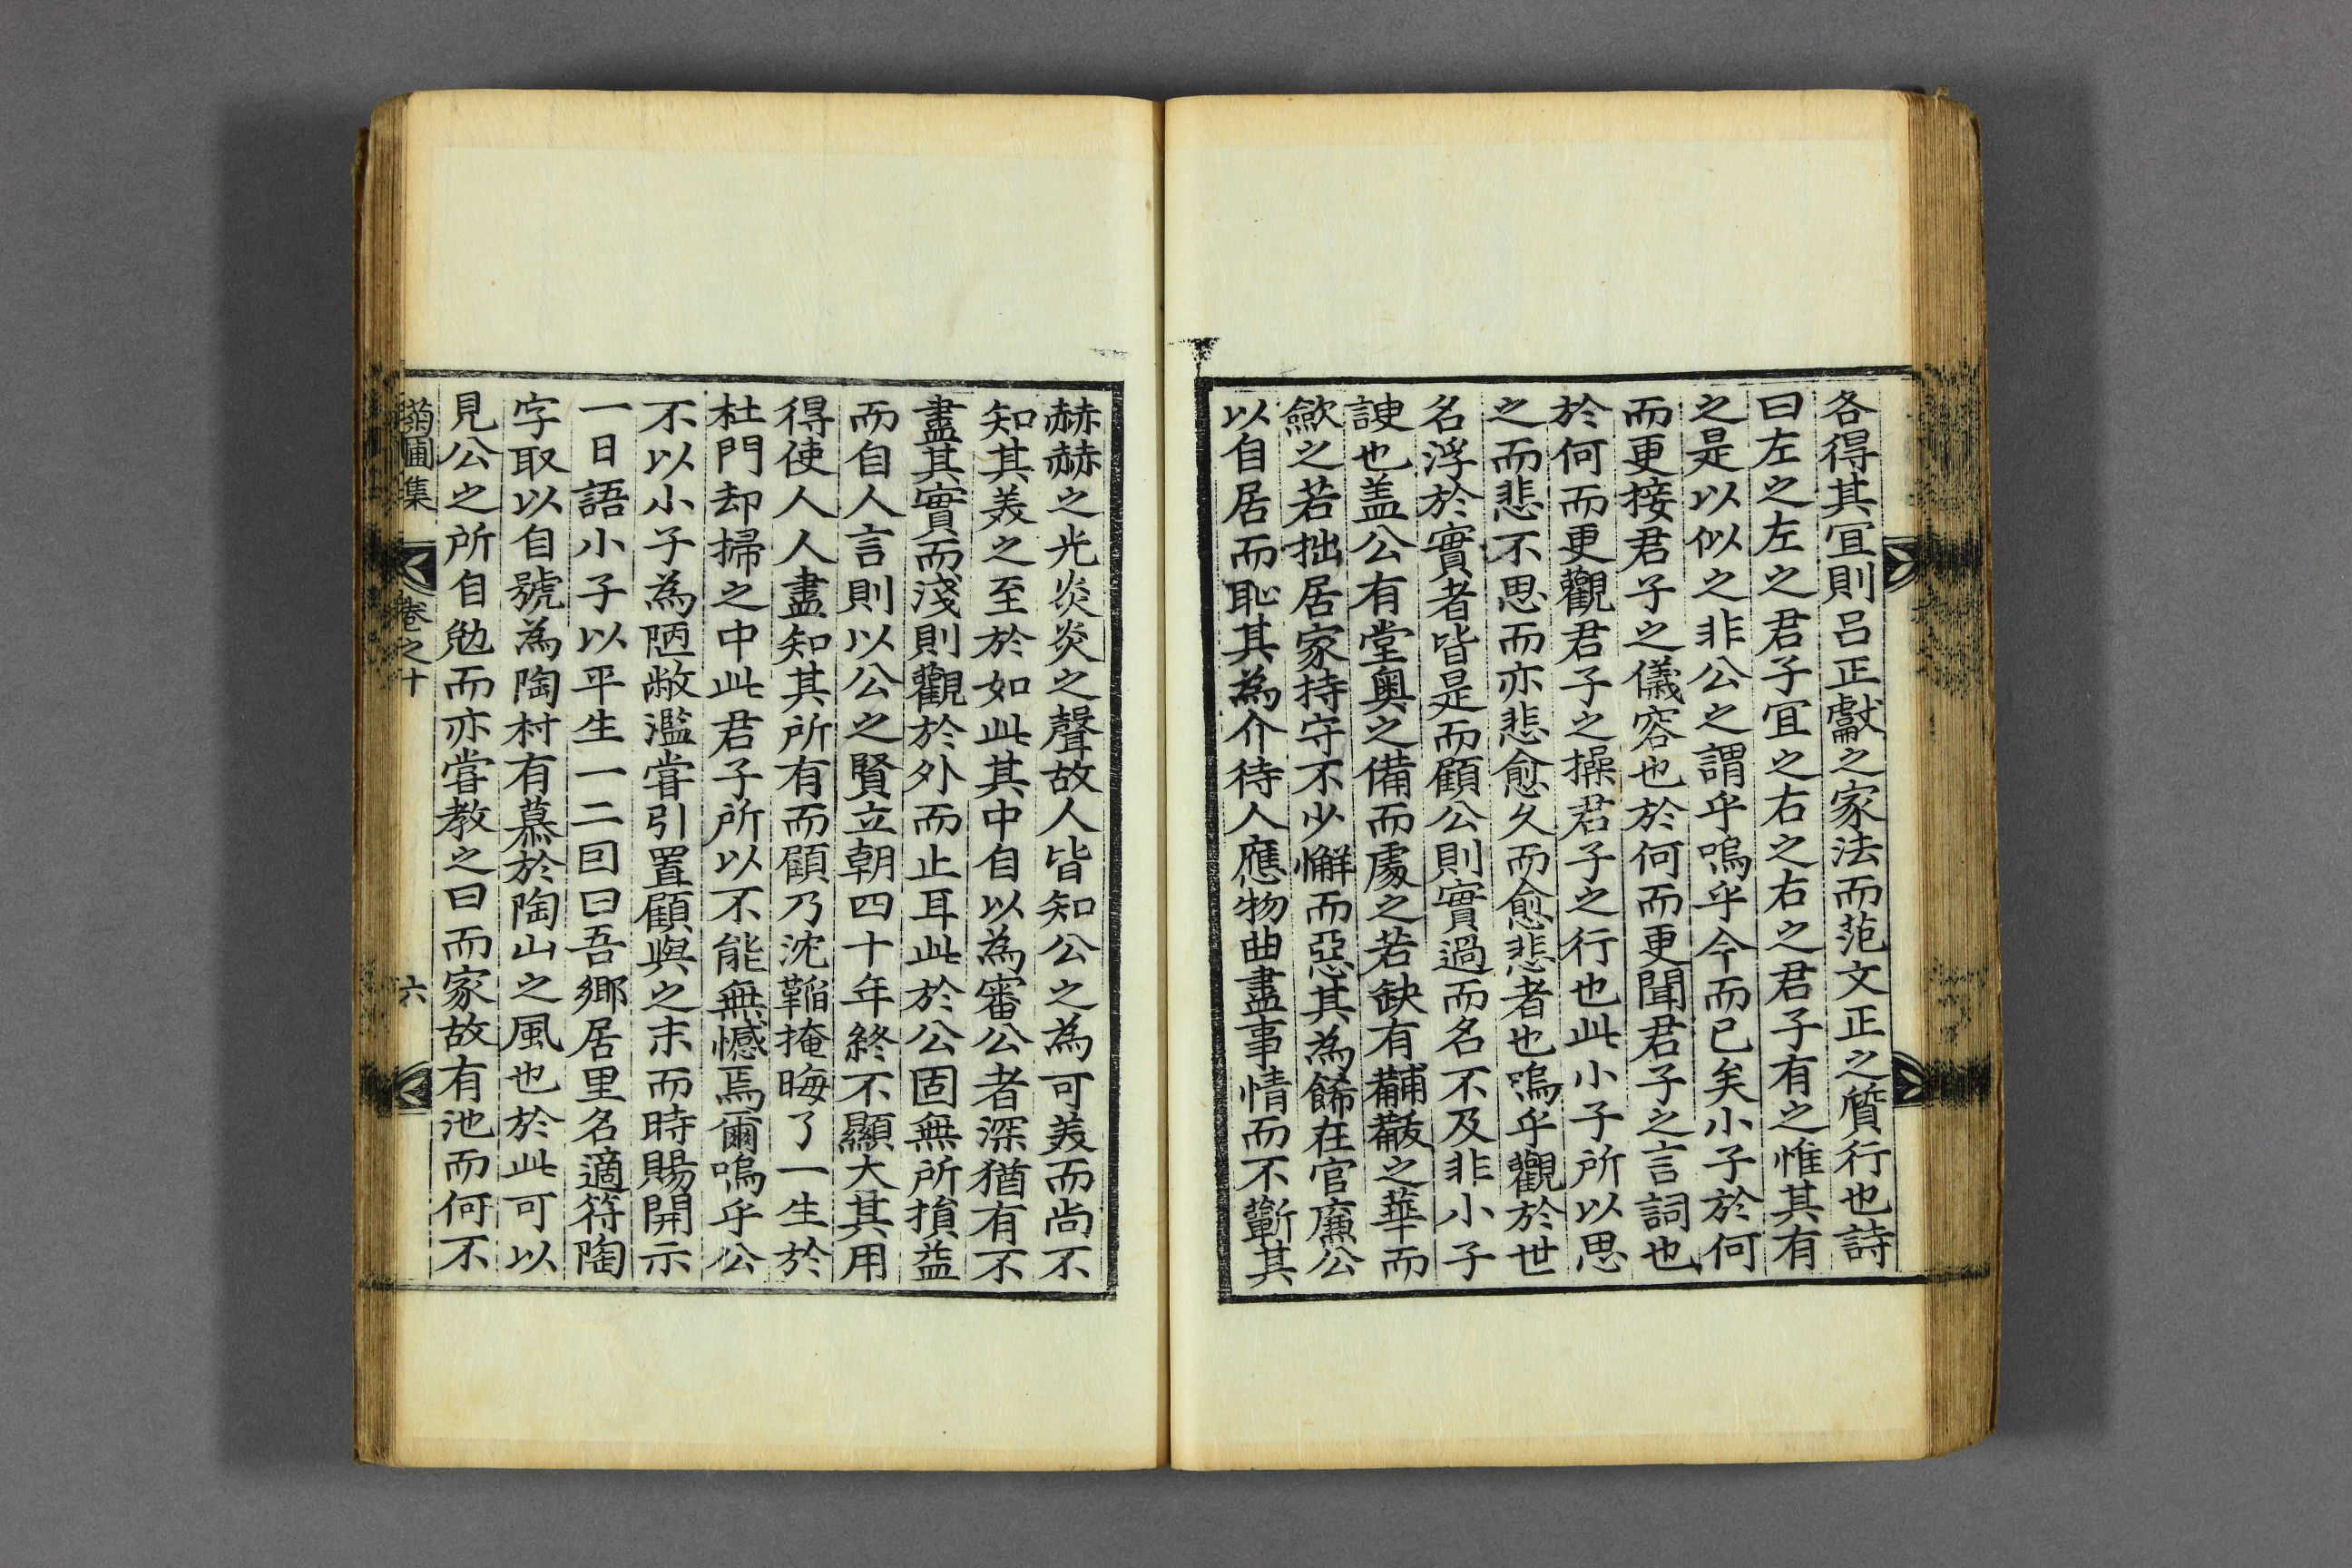 各得其冝則呂正獻之家法而范文正之質行也詩
曰左之左之君子冝之右之右之君子有之惟其有
之是以似之非公之謂乎嗚乎今而已矣小子於何
而更接君子之儀容也於何而更聞君子之言詞也
於何而更觀君子之操君子之行也此小子所以思
之而悲不思而亦悲愈久而愈悲者也嗚乎觀於世
名浮於實者皆是而顧公則實過而名不及非小子
諛也盖公有堂奧之備而處之若缺有黼黻之華而
歛之若拙居家持守不少懈而惡其為餙在官廉公
以自居而恥其為介待人應物曲盡事情而不蘄其
赫赫之光炎炎之聲故人皆知公之為可羙而尚不
知其羙之至於如此其中自以為審公者深猶有不
盡其實而淺則觀於外而止耳此於公固無所損益
而自人言則以公之賢立朝四十年終不顯大其用
得使人人盡知其所有而顧乃沈韜掩晦了一生於
杜門却掃之中此君子所以不能無憾焉爾嗚乎公
不以小子為陋敝濫嘗引置顧與之末而時賜開示
一日語小子以平生一二囙曰吾鄉居里名適符陶
字取以自號為陶村有慕於陶山之風也於此可以
見公之所自勉而亦嘗教之曰而家故有池而何不
菊圃集 卷之十 六